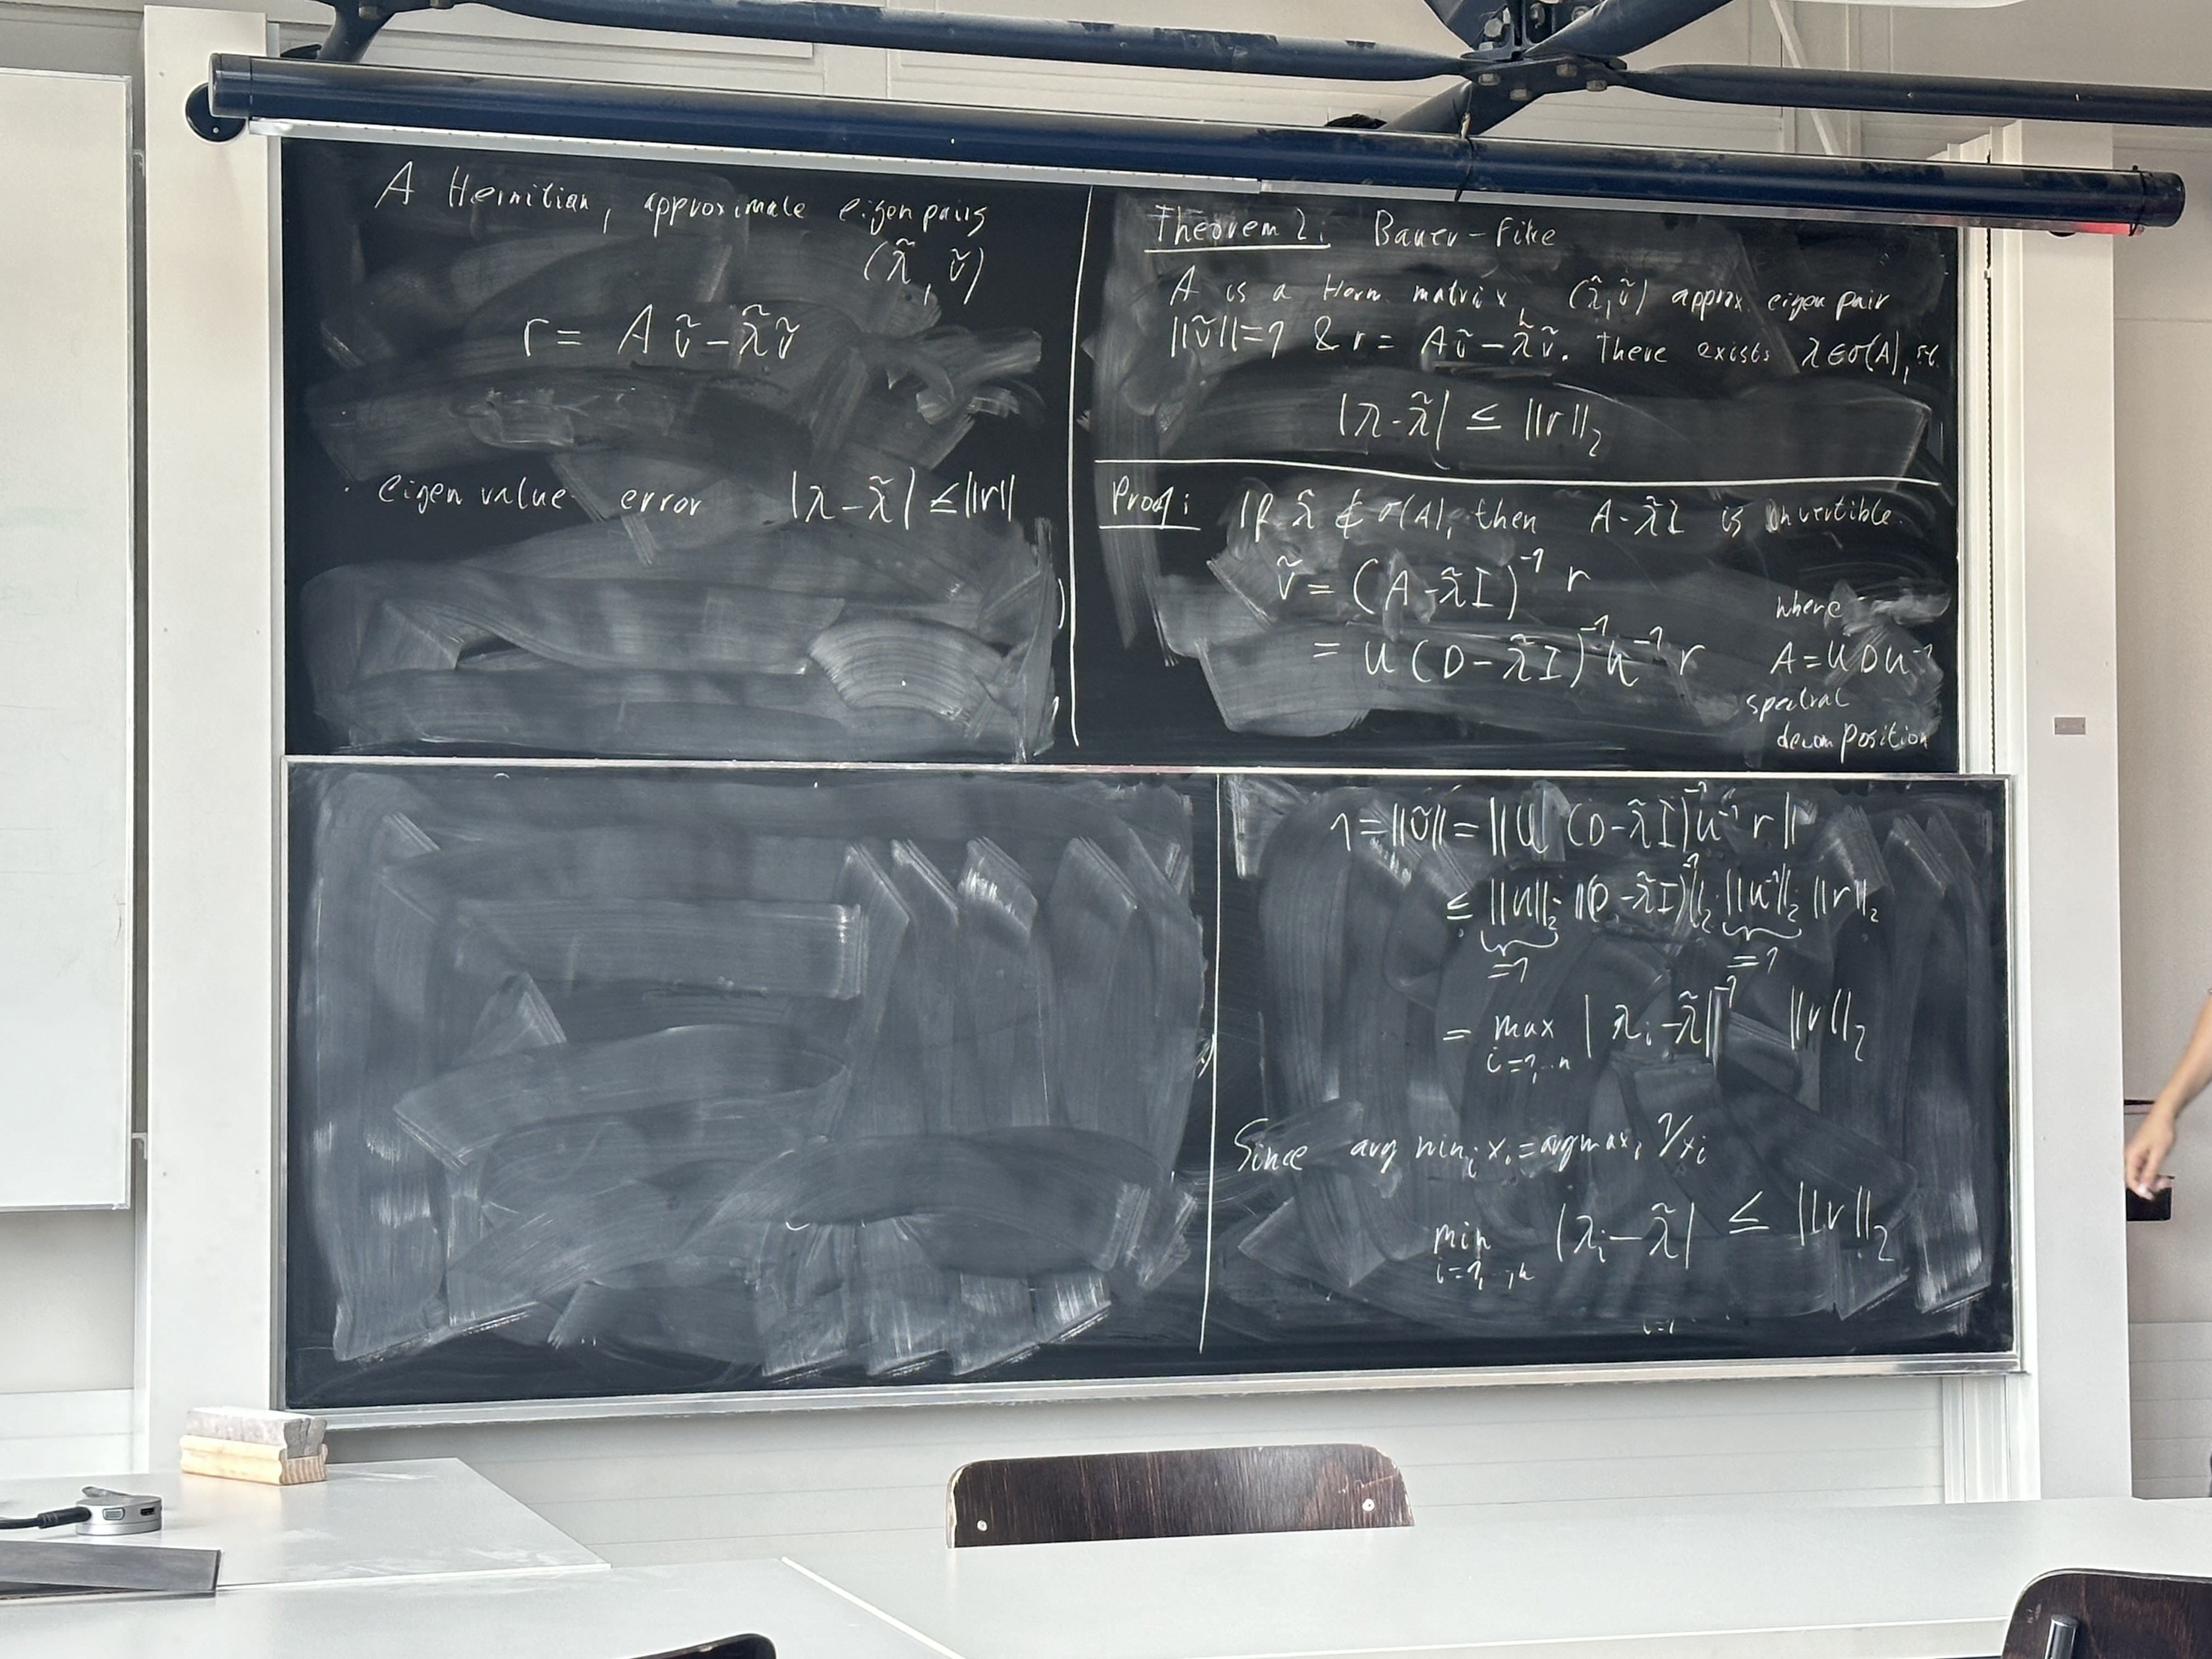 A Hermitian, approximate eigenpairs
(λ̃, ṽ)
r = A ṽ - λ̃ ṽ
· eigenvalue error |λ - λ̃| ≤ ||r||
Theorem 2: Bauer-Fike
A is a Herm. matrix, (λ̃, ṽ) approx. eigenpair
||ṽ||=1 & r = Aṽ - λ̃ṽ. There exists λ∈σ(A), s.t.
|λ - λ̃| ≤ ||r||₂
Proof: If λ̃ ∉ σ(A), then A - λ̃I is invertible.
ṽ = (A - λ̃I)⁻¹ r
= U (D - λ̃I)⁻¹ U⁻¹ r
where
A = U D U⁻¹
spectral
decomposition
1 = ||ṽ|| = ||U (D - λ̃I)⁻¹ U⁻¹ r||
≤ ||U||₂ · ||(D - λ̃I)⁻¹||₂ · ||U⁻¹||₂ ||r||₂
=1 =1
= max |λᵢ - λ̃|⁻¹ ||r||₂
i=1,..n
Since arg minᵢ xᵢ = argmaxᵢ 1/xᵢ
min |λᵢ - λ̃| ≤ ||r||₂
i=1,..,n